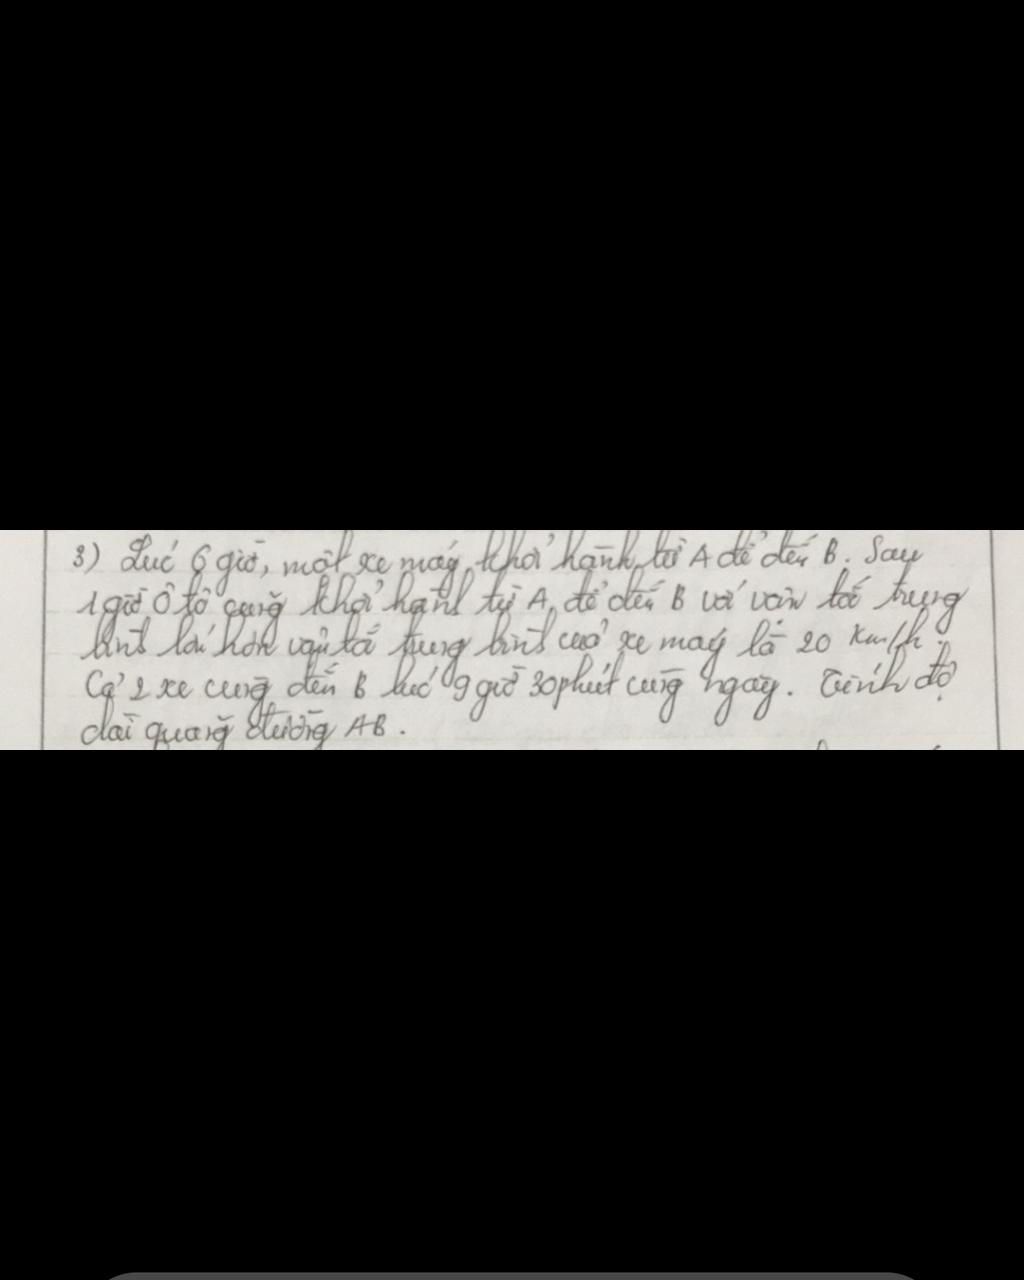 3) Lúc 6 giờ, một xe máy khởi hành từ A để đến B. Sau
1 giờ Ô tô cũng khởi hành từ A để đến B với vận tốc trung
bình lớn hơn vận tốc trung bình của xe máy là 20 Km/h.
Cả 2 xe cùng đến B lúc 9 giờ 30 phút cùng ngày. Tính độ
dài quãng đường AB.